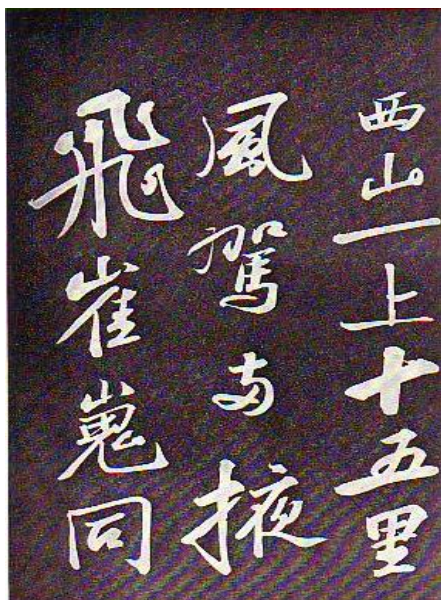 西山一上十五里
風駕兩掖
飛崔嵬同